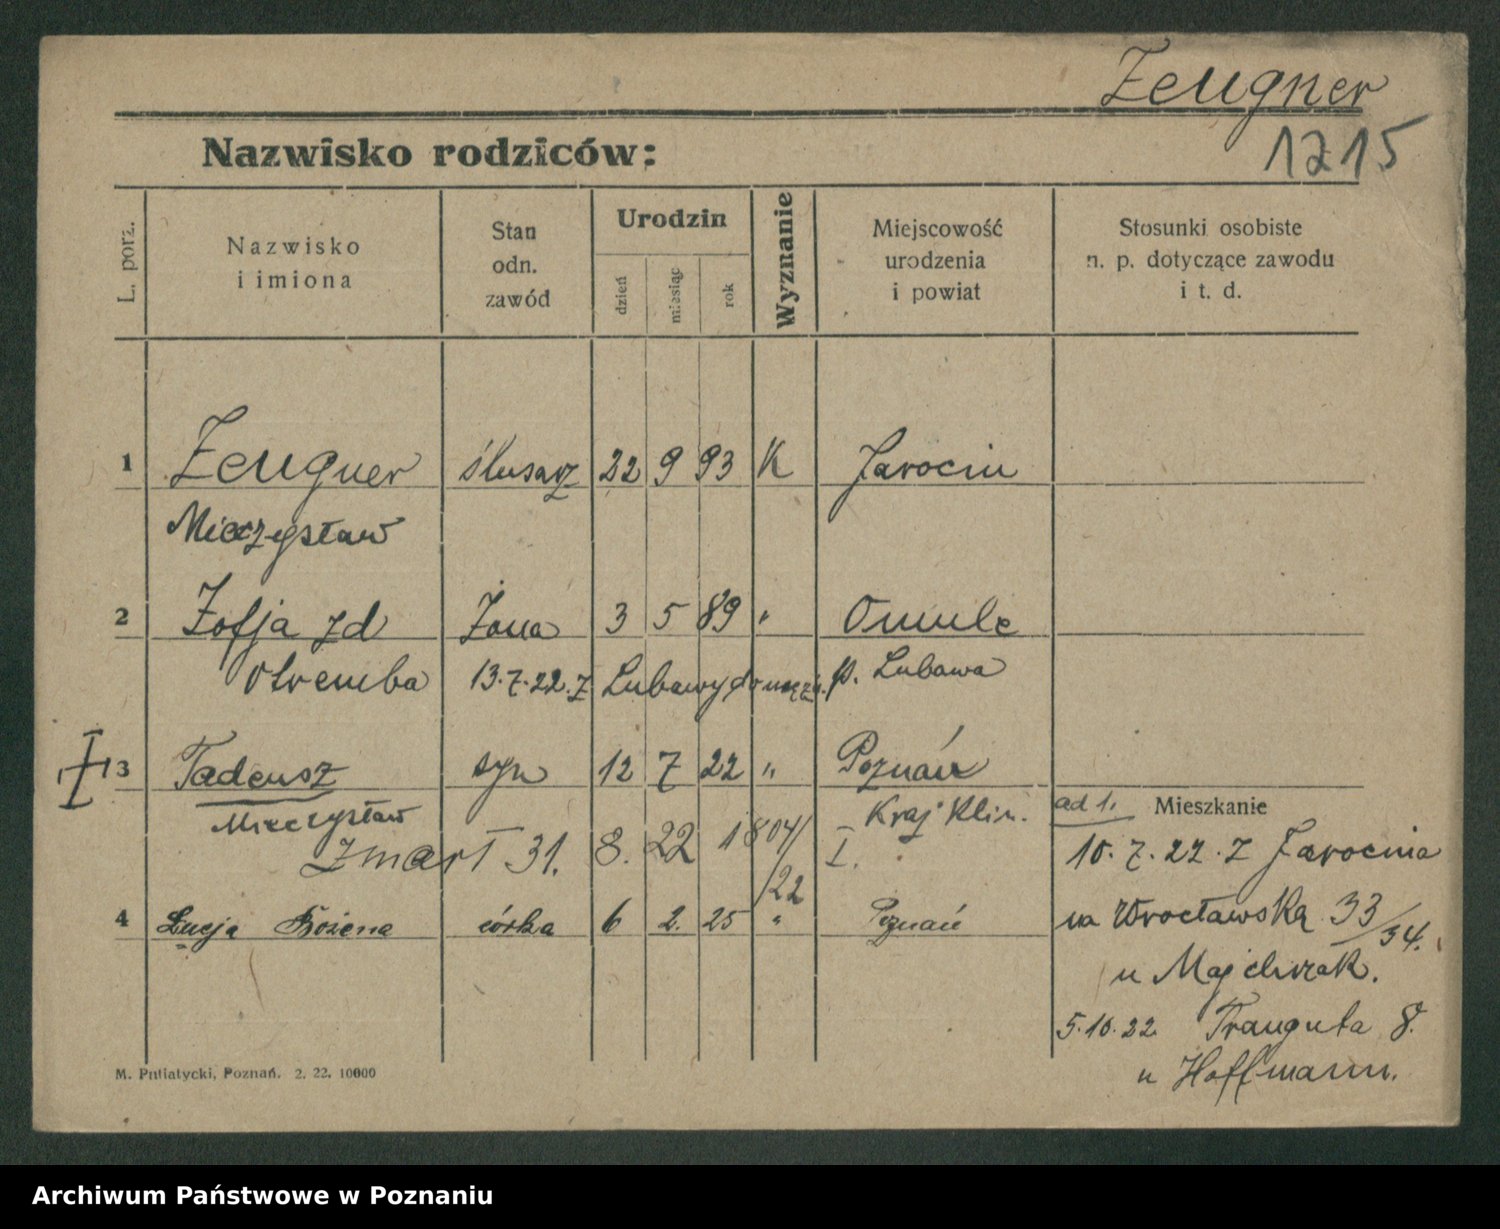 Zeugner
1215
Nazwisko rodziców:
L. porz.
Nazwisko
i imiona
Stan
odn.
zawód
Urodzin
dzień
miesiąc
rok
Wyznanie
Miejscowość
urodzenia
i powiat
Stosunki osobiste
n. p. dotyczące zawodu
i t. d.
1 Zeugner ślusarz 22 9 93 K Jarocin
Mieczysław
2 Zofja zd żona 3 5 89 " Omule
Otremba 13.7.22. z Lubawy do męża. p. Lubawa
3 Tadeusz syn 12 7 22 " Poznań
Mieczysław Kraj. Klin.
ad 1. Mieszkanie
zmarł 31. 8. 22 1804/22 I.
10.7.22. z Jarocina
4 Łucja Bożena córka 6 2. 25 " Poznań
na Wrocławską 33/34.
u Majchrzak.
5.10.22. Traugutta 8.
u Hoffmann.
M. Putiatycki, Poznań. 2. 22. 10000
Archiwum Państwowe w Poznaniu